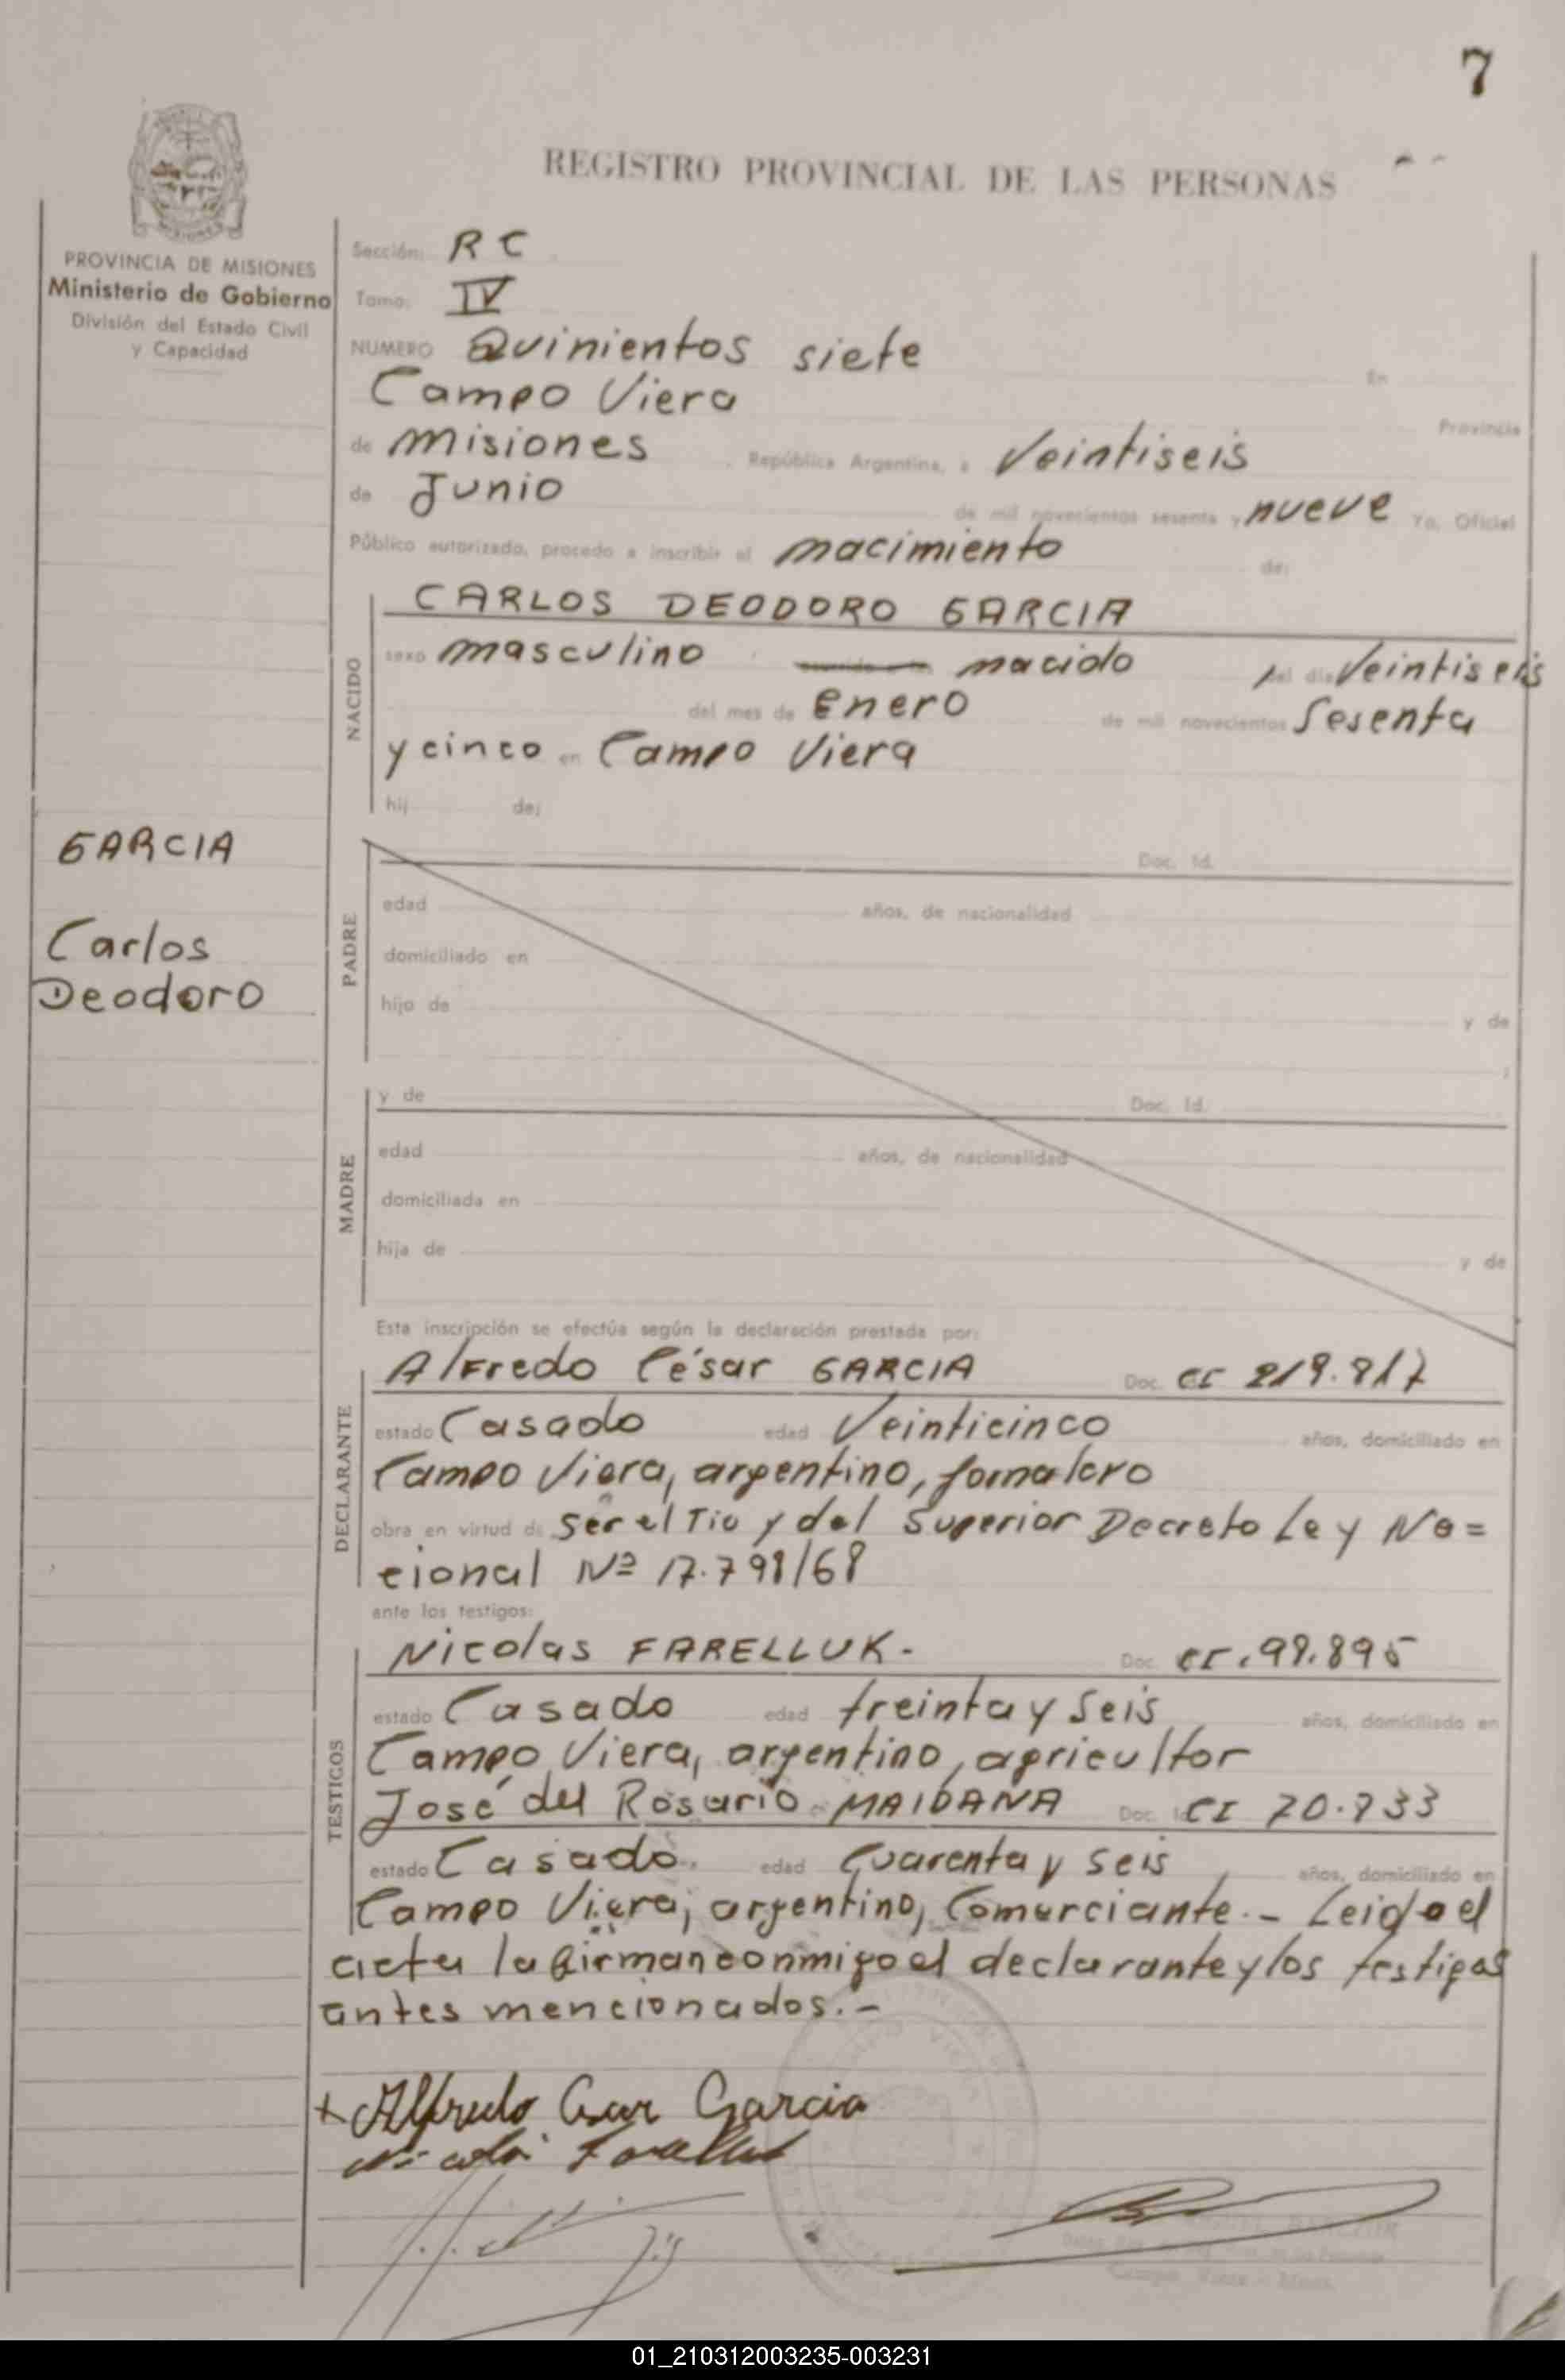 7
REGISTRO PROVINCIAL DE LAS PERSONAS
PROVINCIA DE MISIONES
Ministerio de Gobierno
División del Estado Civil
y Capacidad
GARCIA
Carlos
Deodoro
Sección: RC
Tomo: IV
NUMERO Quinientos siete
En
Campo Viera
Provincia
de Misiones República Argentina, a Veintiseis
de Junio de mil novecientos sesenta y nueve Yo, Oficial
Público autorizado, procedo a inscribir el nacimiento de:
NACIDO
CARLOS DEODORO GARCIA
sexo masculino nacido el día Veintiseis
del mes de Enero de mil novecientos Sesenta
y cinco en Campo Viera
hij de:
PADRE
Doc. Id.
edad años, de nacionalidad
domiciliado en
hijo de y de
MADRE
y de Doc. Id.
edad años, de nacionalidad
domiciliada en
hija de y de
Esta inscripción se efectúa según la declaración prestada por:
DECLARANTE
Alfredo César GARCIA Doc. CI 219.817
estado Casado edad Veinticinco años, domiciliado en
Campo Viera, argentino, jornalero
obra en virtud de Ser el Tio y del Superior Decreto Ley Na=
cional Nº 17.798/68
ante los testigos:
TESTIGOS
Nicolas FARELLUK.- Doc. CI.98.895
estado Casado edad treinta y seis años, domiciliado en
Campo Viera, argentino, agricultor
José del Rosario MAIDANA Doc. Id. CI 70.833
estado Casado edad Cuarenta y seis años, domiciliado en
Campo Viera, argentino, Comerciante.- Leida el
acta la firman conmigo el declarante y los testigos
antes mencionados.-
+ Alfredo Cesar Garcia
01_210312003235-003231